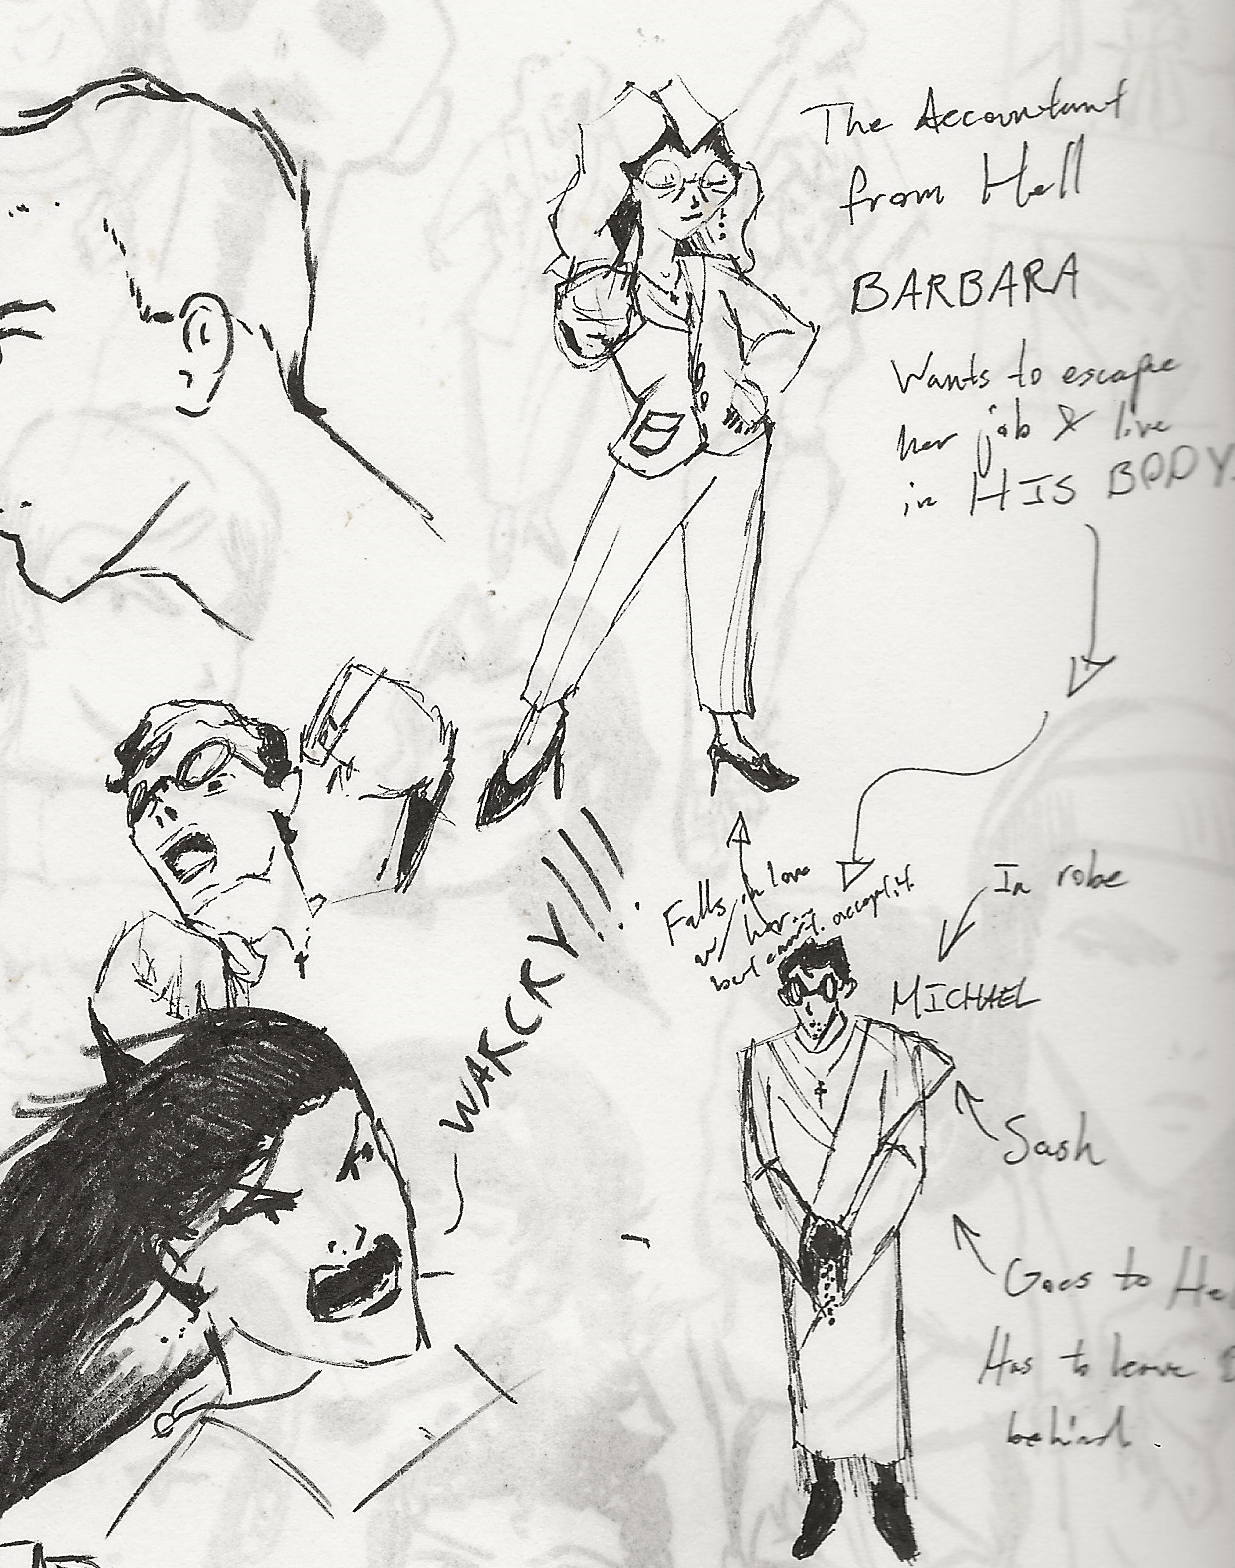 The Accountant
from Hell
BARBARA
Wants to escape
her job & live
in HIS BODY
Falls in love
w/ her...
but can't accept it
In robe
MICHAEL
WARCRY!!!
Sash
Goes to
Has to leave
behind.